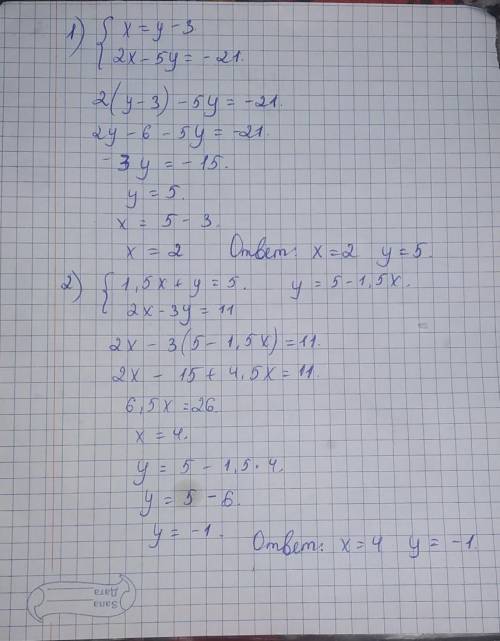 1) { x = y - 3
2x - 5y = -21.
2(y - 3) - 5y = -21.
2y - 6 - 5y = -21.
-3y = -15.
y = 5.
x = 5 - 3.
x = 2 Ответ: x = 2 y = 5.
2) { 1,5x + y = 5. y = 5 - 1,5x.
2x - 3y = 11
2x - 3(5 - 1,5x) = 11.
2x - 15 + 4,5x = 11.
6,5x = 26.
x = 4.
y = 5 - 1,5 · 4.
y = 5 - 6.
y = -1. Ответ: x = 4 y = -1.
Sana
Дата